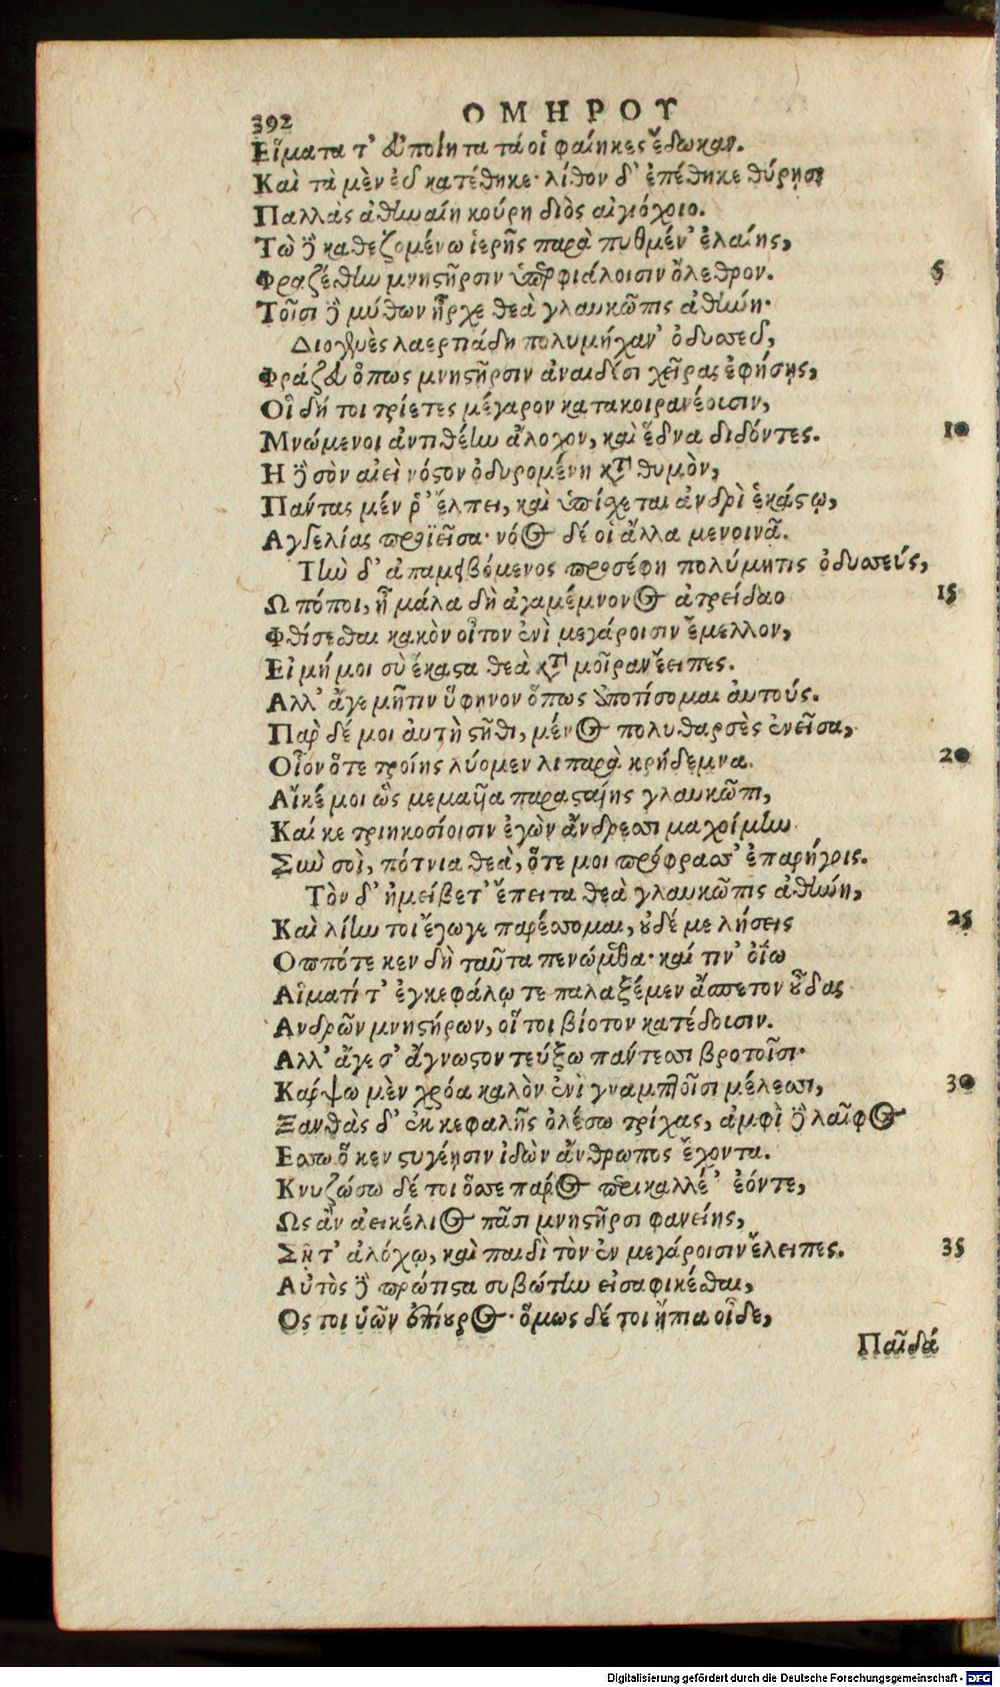 392 ΟΜΗΡΟΥ
Εἵματα τ' εὐποίητα τά οἱ φαίηκες ἔδωκαν.
Καὶ τὰ μὲν εὖ κατέθηκε· λίθον δ' ἐπέθηκε θύρῃσι
Παλλὰς ἀθηναίη κούρη διὸς αἰγιόχοιο.
Τὼ δὲ καθεζομένω ἱερῆς παρὰ πυθμέν' ἐλαίης,
Φραζέσθην μνηστῆρσιν ὑπερφιάλοισιν ὄλεθρον. 5
Τοῖσι δὲ μύθων ἦρχε θεὰ γλαυκῶπις ἀθήνη·
Διογενὲς λαερτιάδη πολυμήχαν' ὀδυσσεῦ,
Φράζευ ὅπως μνηστῆρσιν ἀναιδέσι χεῖρας ἐφήσῃς,
Οἳ δή τοι τρίετες μέγαρον κατακοιρανέουσιν,
Μνώμενοι ἀντιθέην ἄλοχον, καὶ ἕδνα διδόντες. 10
Η δὲ σὸν αἰεὶ νόστον ὀδυρομένη κατὰ θυμὸν,
Πάντας μέν ῥ' ἔλπει, καὶ ὑπίσχεται ἀνδρὶ ἑκάστῳ,
Αγγελίας προϊεῖσα· νόος δέ οἱ ἄλλα μενοινᾶ.
Τὴν δ' ἀπαμειβόμενος προσέφη πολύμητις ὀδυσσεύς,
Ω πόποι, ἦ μάλα δὴ ἀγαμέμνονος ἀτρείδαο 15
Φθίσεσθαι κακὸν οἶτον ἐνὶ μεγάροισιν ἔμελλον,
Εἰ μή μοι σὺ ἕκαστα θεὰ κατὰ μοῖραν ἔειπες.
Αλλ' ἄγε μῆτιν ὕφηνον ὅπως ἀποτίσομαι αὐτούς.
Πὰρ δέ μοι αὐτὴ στῆθι, μένος πολυθαρσὲς ἐνεῖσα,
Οἷον ὅτε τροίης λύομεν λιπαρὰ κρήδεμνα. 20
Αἴκέ μοι ὣς μεμαυῖα παρασταίης γλαυκῶπι,
Καί κε τριηκοσίοισιν ἐγὼν ἄνδρεσσι μαχοίμην
Σὺν σοὶ, πότνια θεὰ, ὅτε μοι πρόφρασσ' ἐπαρήγοις.
Τὸν δ' ἠμείβετ' ἔπειτα θεὰ γλαυκῶπις ἀθήνη,
Καὶ λίην τοι ἔγωγε παρέσσομαι, οὐδέ με λήσεις 25
Οππότε κεν δὴ ταῦτα πενώμεθα· καί τιν' ὀΐω
Αἵματί τ' ἐγκεφάλῳ τε παλαξέμεν ἄσπετον οὖδας
Ανδρῶν μνηστήρων, οἵ τοι βίοτον κατέδουσιν.
Αλλ' ἄγε σ' ἄγνωστον τεύξω πάντεσσι βροτοῖσι·
Κάρψω μὲν χρόα καλὸν ἐνὶ γναμπτοῖσι μέλεσσι, 30
Ξανθὰς δ' ἐκ κεφαλῆς ὀλέσω τρίχας, ἀμφὶ δὲ λαῖφος
Εσσω ὅ κεν στυγέῃσιν ἰδὼν ἄνθρωπος ἔχοντα.
Κνυζώσω δέ τοι ὄσσε πάρος περικαλλέ' ἐόντε,
Ως ἂν ἀεικέλιος πᾶσι μνηστῆρσι φανείης,
Σῇ τ' ἀλόχῳ, καὶ παιδὶ τὸν ἐν μεγάροισιν ἔλειπες. 35
Αὐτὸς δὲ πρώτιστα συβώτην εἰσαφικέσθαι,
Ος τοι ὑῶν ἐπίουρος· ὅμως δέ τοι ἤπια οἶδε,
Παῖδά
Digitalisierung gefördert durch die Deutsche Forschungsgemeinschaft - DFG